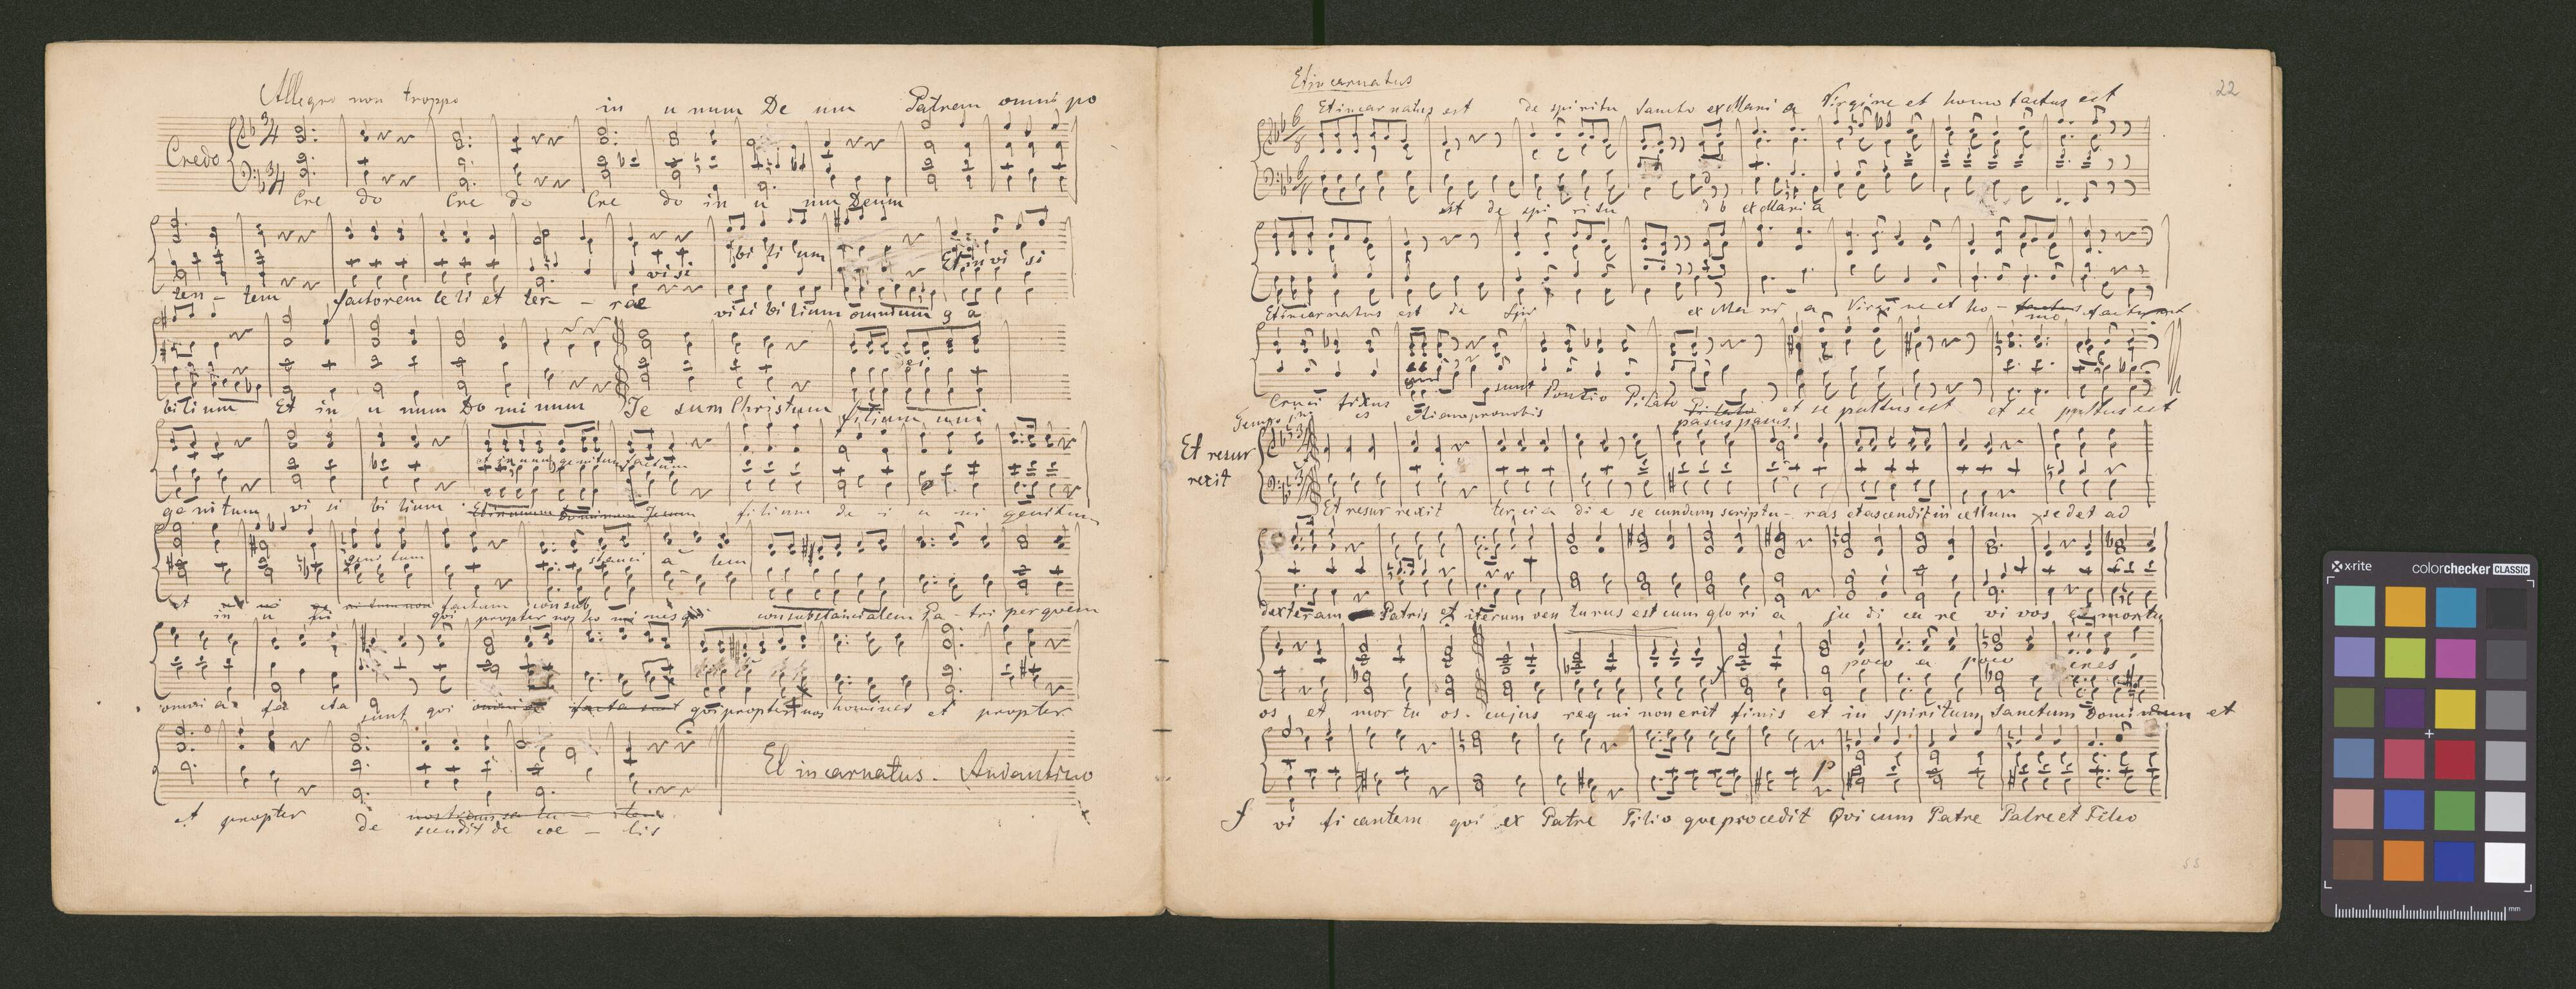 Allegro non troppo
in u num De um Patrem omni po
Credo
3/4
Cre do Cre do Cre do in u num Deum
visi bi li um Et in vi si
ten - tem factorem celi et ter - rae visi bi lium omnium
bilium Et in u num Do mi num Je sum Christum filium uni
genitum factum
genitum vi si bi lium Et in unum Dominum Jesum filium de i u ni genitum
geni tum stanci a lem
et factum consub
in u qui propter nos ho mi nes consubstancialem Pa - tri per quem
omni a fa cta sunt qui omnia facta sunt qui propter nos homines et propter
Et incarnatus. Andantino
et propter de nostram salutem
scendit de coe - lis
22
Et incarnatus
Et incarnatus est de spiritu Sancto ex Mari a Virgine et homo factus est
est de spi ri tu ex Maria
Et incarnatus est de Spir ex Ma ri a Virgine et ho - mo factus est
sunt Pontio Pilato
Cruci fixus etiam pro nobis Pilato et se pultus est et se pultus est
passus passus
Tempo
Et resur
rexit
Et resur rexit terci a di e se cundum scriptu - ras et ascendit in cellum sedet ad
dexteram Patris et iterum ven turus est cum glo ri a ju di ca re vi vos et mortu
poco a poco cres
os et mor tu os. cujus reg ni non erit finis et in spiritum Sanctum Dominum et
p
f vi fi cantem qui ex Patre Filio que procedit Qui cum Patre Patre et Filio
55
x-rite
colorchecker CLASSIC
mm